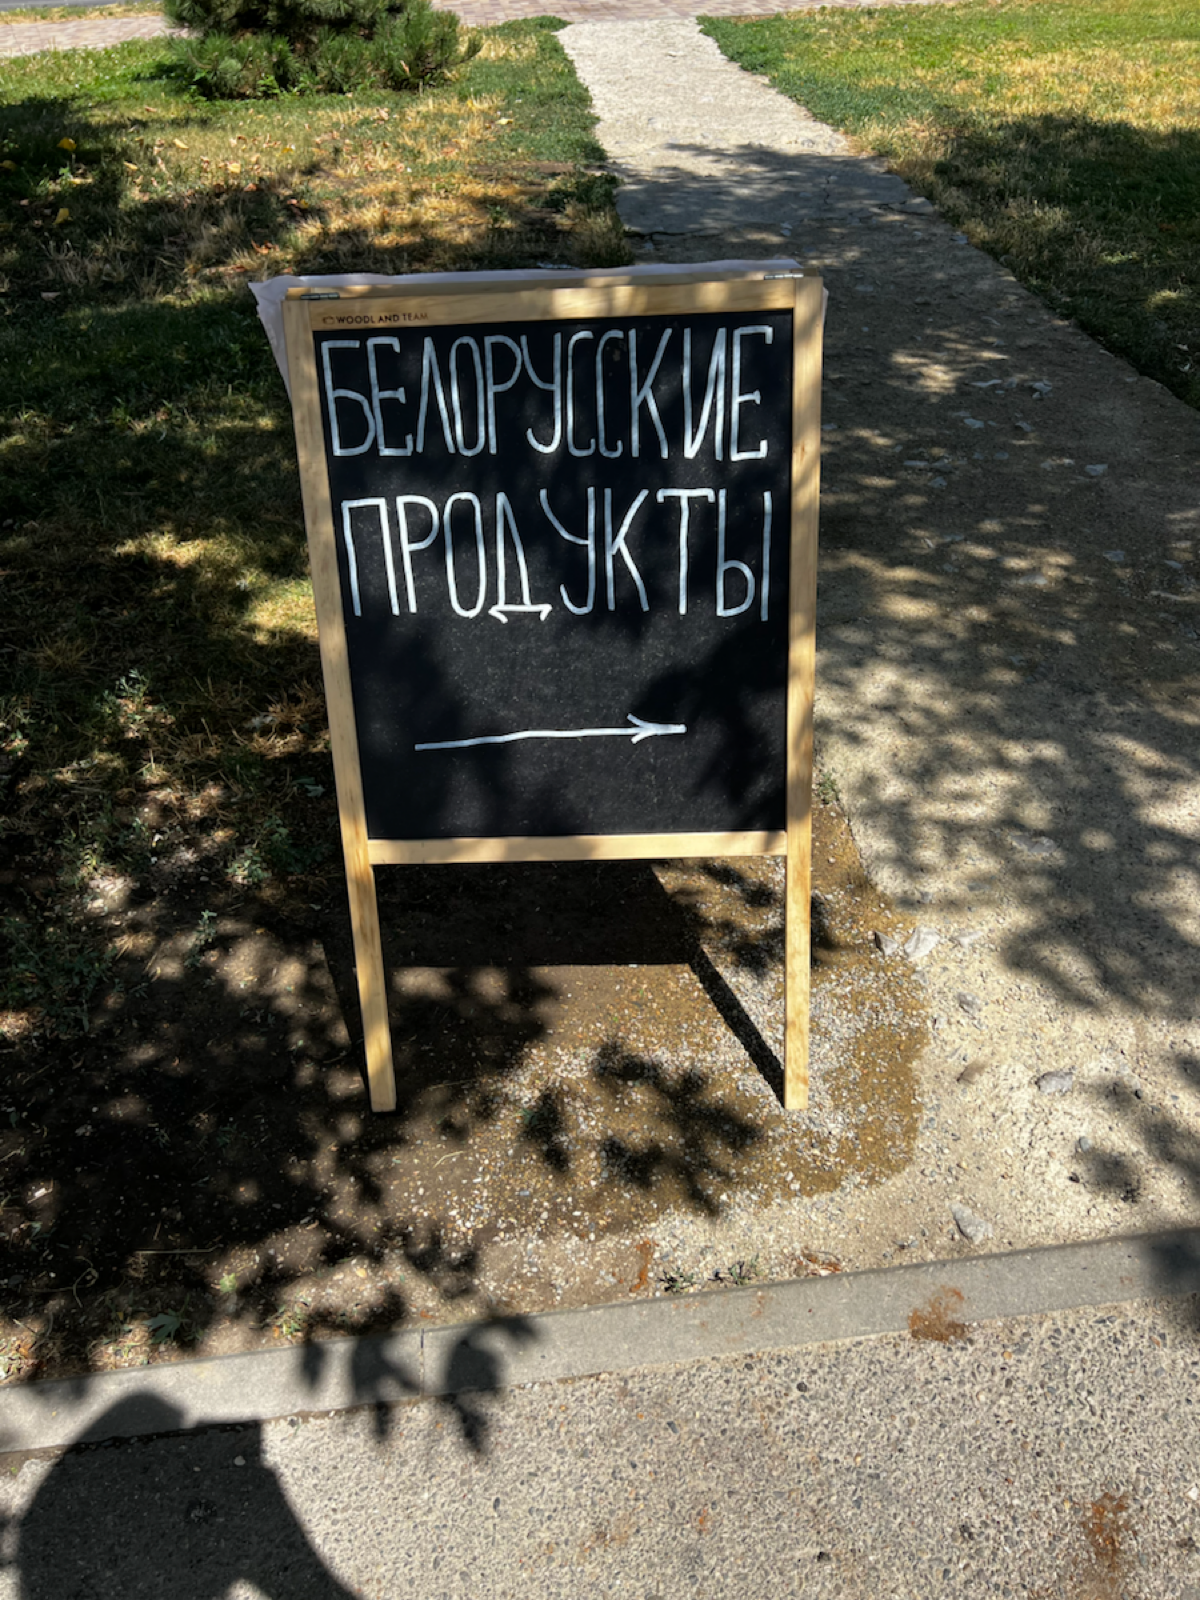 WOODLAND TEAM
БЕЛОРУССКИЕ
ПРОДУКТЫ